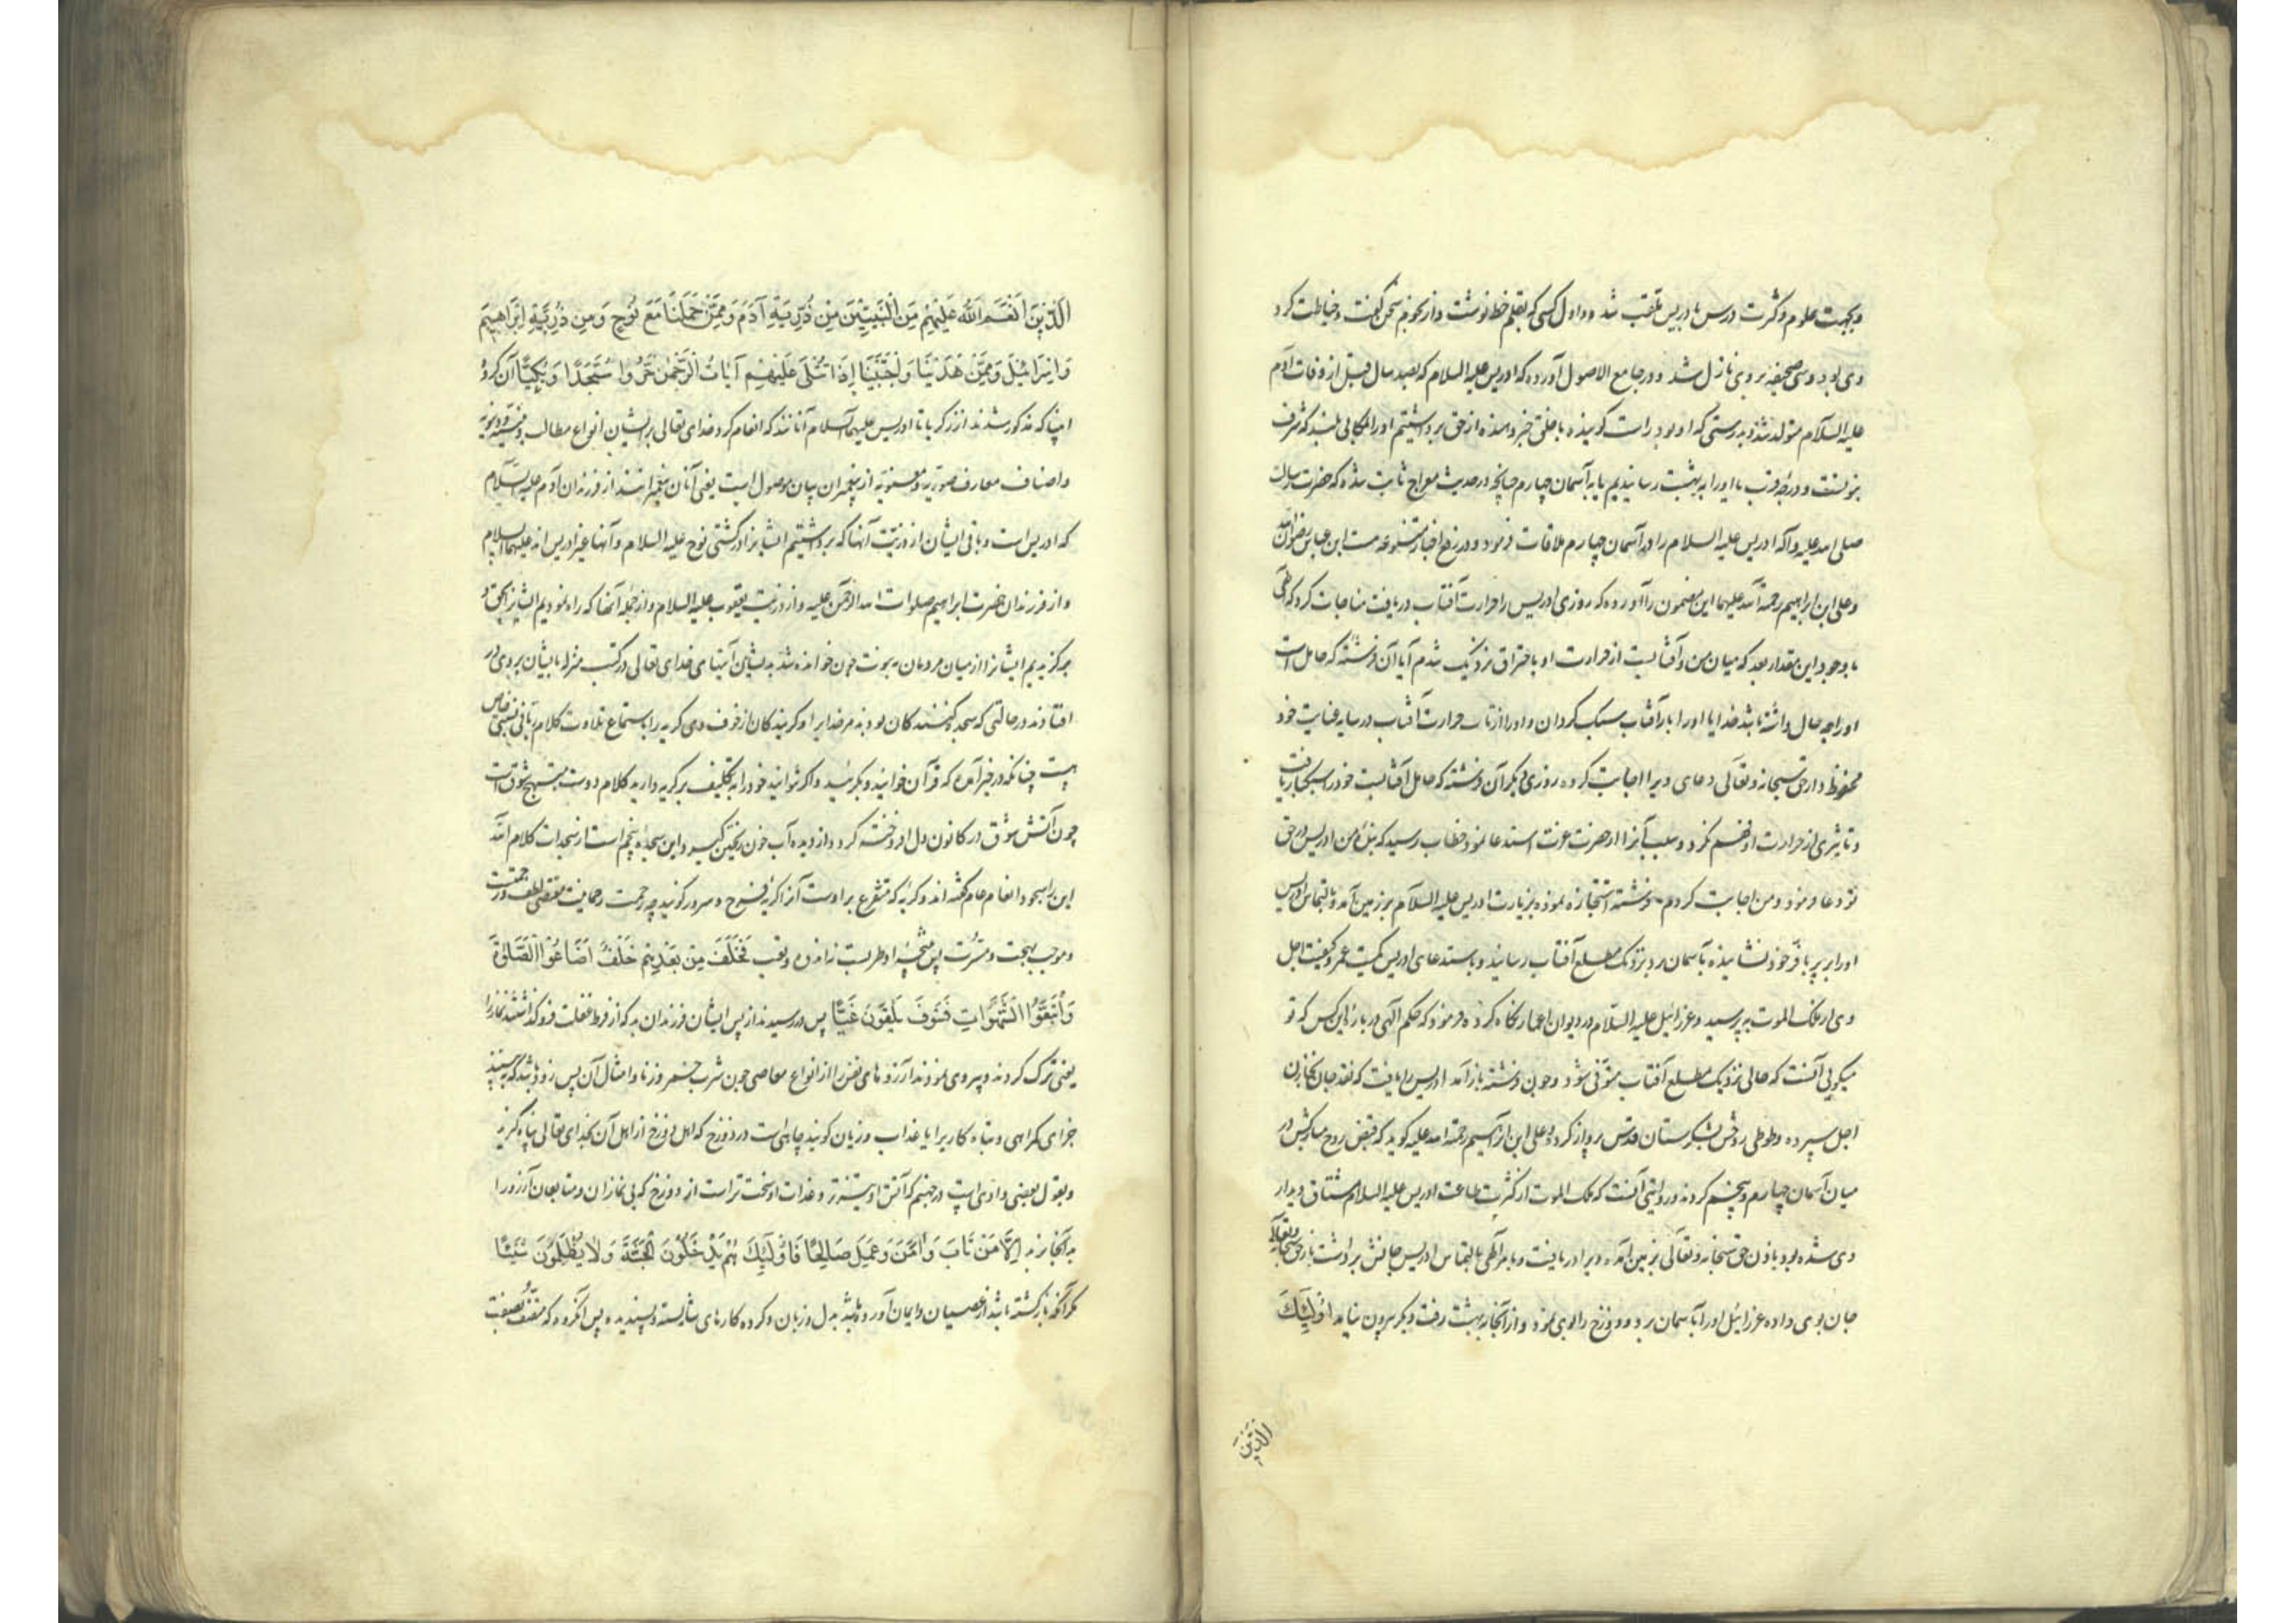 و بجهت علوم و کثرت درس بادریس ملقب شد و اول کسی که بقلم خط نوشت و از نجوم سخن گفت و خیاطت کرد
وی بود و سی صحیفه بر وی نازل شد و در جامع الاصول آورده که ادریس علیه السلام که بصد سال قبل از وفات آدم
علیه السلام متولد شد و بدرستی که او بود راست گوینده با خلق خبر دهنده از حق برداشتیم او را بمکانی بلند که شرف
نبوتست و درجهٔ قرب یا او را به بهشت رسانیدیم یا به آسمان چهارم چنانچه در حدیث معراج ثابت شده که حضرت رسالت
صلی الله علیه و آله ادریس علیه السلام را در آسمان چهارم ملاقات فرمود و در رفع اخبار متنوعه هست ابن عباس رضوان الله
و علی ابن ابراهیم رحمة الله علیهما این مضمون را آورده که روزی ادریس را حرارت آفتاب دریافت مناجات کرد که الهی
با وجود این مقدار بعد که میان من و آفتابست از حرارت او باحتراق نزدیک شدم آیا آن فرشته که حامل است
او را چه حال داشته باشد خدایا او را بار آفتاب سبک گردان و او را از تاب حرارت آفتاب در سایه عنایت خود
محفوظ دار حق سبحانه و تعالی دعای ویرا اجابت کرده روز دیگر آن فرشته که حامل آفتابست خود را سبکبار یافت
و تاثیری از حرارت او فهم نکرد و سبب آنرا از حضرت عزت استدعا نمود خطاب رسید که بندهٔ من ادریس در حق
تو دعا فرمود و من اجابت کردم فرشته استجازه نموده بزیارت ادریس علیه السلام بر زمین آمد و بالتماس ادریس
او را بر پر با فر خود نشانیده بآسمان برد و نزدیک مطلع آفتاب رسانید و باستدعای ادریس کمیت عمر و کیفیت اجل
وی از ملک الموت بپرسید و عزرائیل علیه السلام در دیوان اعمار نگاه کرده فرمود که حکم الهی در بارهٔ این کس که تو
میگوئی آنست که حالی نزدیک مطلع آفتاب متوفی شود و چون فرشته باز آمد ادریس را یافت که نقد جان بخازن
اجل سپرده و طوطی روحش بشکرستان قدس پرواز کرده و علی ابن ابراهیم رحمة الله علیه گوید که قبض روح مبارکش در
میان آسمان چهارم و پنجم کردند و روایتی آنست که ملک الموت از کثرت طاعت ادریس علیه السلام مشتاق دیدار
وی شده بود باذن حق سبحانه و تعالی بزمین آمده ویرا دریافت و بامر الهی بالتماس ادریس جانش برداشت باز حق سبحانه و تعالی
جان بوی داده عزرائیل او را بآسمان برد و دوزخ را بوی نمود و از آنجا به بهشت رفت و دیگر بیرون نیامد اُولٰئِكَ
الَّذِينَ
الَّذِينَ اَنْعَمَ اللّٰهُ عَلَيْهِمْ مِنَ النَّبِيِّينَ مِنْ ذُرِّيَّةِ آدَمَ وَمِمَّنْ حَمَلْنَا مَعَ نُوحٍ وَمِنْ ذُرِّيَّةِ اِبْرَاهِيمَ
وَاِسْرَائِيلَ وَمِمَّنْ هَدَيْنَا وَاجْتَبَيْنَا اِذَا تُتْلٰى عَلَيْهِمْ آيَاتُ الرَّحْمٰنِ خَرُّوا سُجَّدًا وَبُكِيًّا آن گروه
انبیا که مذکور شدند از زکریا تا ادریس علیهما السلام آنانند که انعام کرد خدای تعالی بر ایشان بانواع مطالب دینیه و دنیویه
و اصناف معارف صوریه و معنویه از پیغمبران بیان موصول است یعنی آنان پیغمبرانند از فرزندان آدم علیه السلام
که ادریس است و باقی ایشان از ذریت آنها که برداشتیم ایشانرا در کشتی نوح علیه السلام و آنها غیر ادریس اند علیهما السلام
و از فرزندان حضرت ابراهیم صلوات الله الرحمن علیه و از ذریت یعقوب علیه السلام و از جمله آنها که راه نمودیم ایشانرا بحق و
برگزیدیم ایشانرا از میان مردمان بنبوت چون خوانده شد بر ایشان آیتهای خدای تعالی در کتب منزله بایشان بر روی در
افتادند در حالتی که سجده کنندگان بودند مر خدایرا و گریندگان از خوف وی گریه را باستماع تلاوت کلام ربانی نسبتی خاص
هست چنانکه در خبر آمده که قرآن خوانید و بگریید و اگر نتوانید خود را به تکلیف بر گریه دارید کلام دوست مهیج شوق است
چون آتش شوق در کانون دل افروخته گردد از دیده آب خون ریختن گیرد و این سجدهٔ پنجم است از سجدات کلام الله
این را سجود انعام عام گفته اند و گریه که متفرع بر اوست آنرا گریه فرح و سرور گویند چه رحمت رحمانیت مقتضی لطف و رحمتست
و موجب بهجت و مسرت پس نتیجهٔ او طربست نه اندوه و تعب فَخَلَفَ مِنْ بَعْدِهِمْ خَلْفٌ اَضَاعُوا الصَّلٰوةَ
وَاتَّبَعُوا الشَّهَوَاتِ فَسَوْفَ يَلْقَوْنَ غَيًّا پس در رسیدند از پس ایشان فرزندان بد که از فرط غفلت فرو گذاشتند نماز را
یعنی ترک کردند و پیروی نمودند آرزوهای نفس را از انواع معاصی چون شرب خمر و زنا و امثال آن پس زود باشد که ببینند
جزای گمراهی و تباه کاریرا یا عذاب و زیان گویند چاهی است در دوزخ که اهل دوزخ از اهل آن بخدای تعالی پناه گیرند
و بقول بعضی وادی است در جهنم که آتش او تیزتر و عذاب او سخت تر است از دوزخ که بی نمازان و متابعان آرزو را
به آنجا برند اِلَّا مَنْ تَابَ وَاٰمَنَ وَعَمِلَ صَالِحًا فَاُولٰئِكَ يَدْخُلُونَ الْجَنَّةَ وَلَا يُظْلَمُونَ شَيْئًا
مگر آنکه بازگشته باشد از عصیان و ایمان آورده باشد بدل و زبان و کرده کارهای شایسته و پسندیده پس آنگروه که متصف بصفت